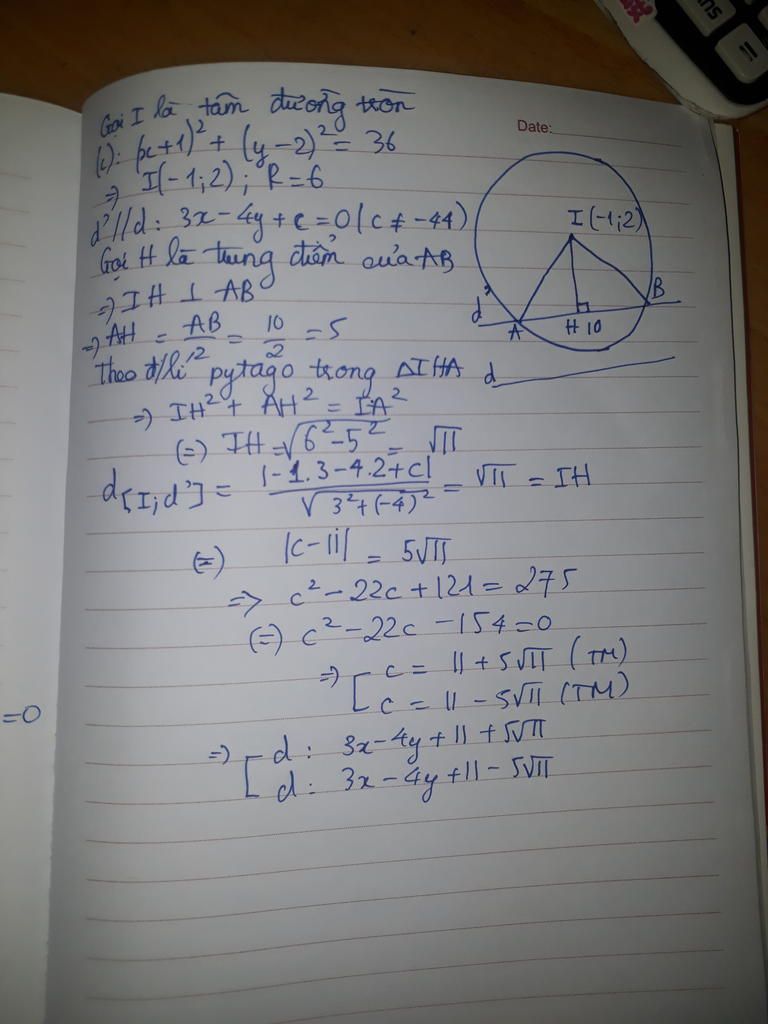 Gọi I là tâm đường tròn
(c): (x+1)² + (y-2)² = 36
Date:
=> I(-1;2); R=6
d'//d: 3x-4y+c=0(c≠-44)
Gọi H là trung điểm của AB
=> IH ⊥ AB
=> AH = AB/2 = 10/2 = 5
Theo đ/lí pytago trong ΔIHA
=> IH² + AH² = IA²
(=) IH = √(6²-5²) = √11
d[I;d'] = |-1.3-4.2+c| / √(3²+(-4)²) = √11 = IH
(=) |c-11| = 5√11
=> c²-22c+121 = 275
(=) c²-22c-154=0
=> [ c = 11+5√11 (TM)
c = 11-5√11 (TM)
=> [ d: 3x-4y+11+5√11
d: 3x-4y+11-5√11
I(-1;2)
d'
A
H 10
B
d
=0
=